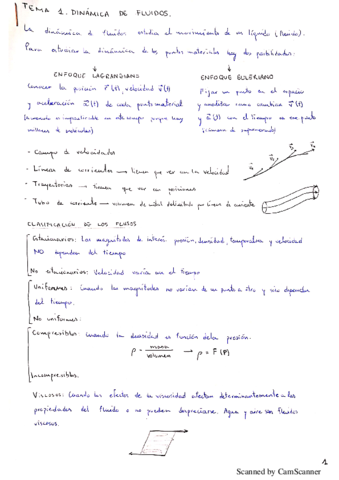 TEMA 1. DINÁMICA DE FLUIDOS.
La dinámica de fluidos estudia el movimiento de un líquido (fluido).
Para estudiar la dinámica de los puntos materiales hay dos posibilidades:
ENFOQUE LAGRANGIANO
Conocer la posición r(t), velocidad v(t)
y aceleración a(t) de cada punto material
ENFOQUE EULERIANO
Fijar un punto en el espacio
y analizar como cambia v(t)
y a(t) con el tiempo en ese punto
- Campo de velocidades
- Líneas de corrientes → tienen que ver con la velocidad
- Trayectorias → tienen que ver con posiciones
- Tubo de corriente → volumen de delimitado por líneas de corriente
CLASIFICACIÓN DE LOS FLUJOS
Estacionarios: Las magnitudes de interés: presión, densidad, temperatura y velocidad
NO dependen del tiempo
No estacionarios: Velocidad varía en el tiempo
Uniformes: Cuando las magnitudes no varían de un punto a otro y sí dependen
del tiempo.
No uniformes:
Compresibles: cuando la densidad es función de la presión.
ρ = masa/volumen → ρ = F(P)
Incompresibles.
VISCOSOS: Cuando los efectos de su viscosidad afectan determinantemente a las
propiedades del fluido o no pueden despreciarse. Agua y aire son fluidos
viscosos.
1
Scanned by CamScanner